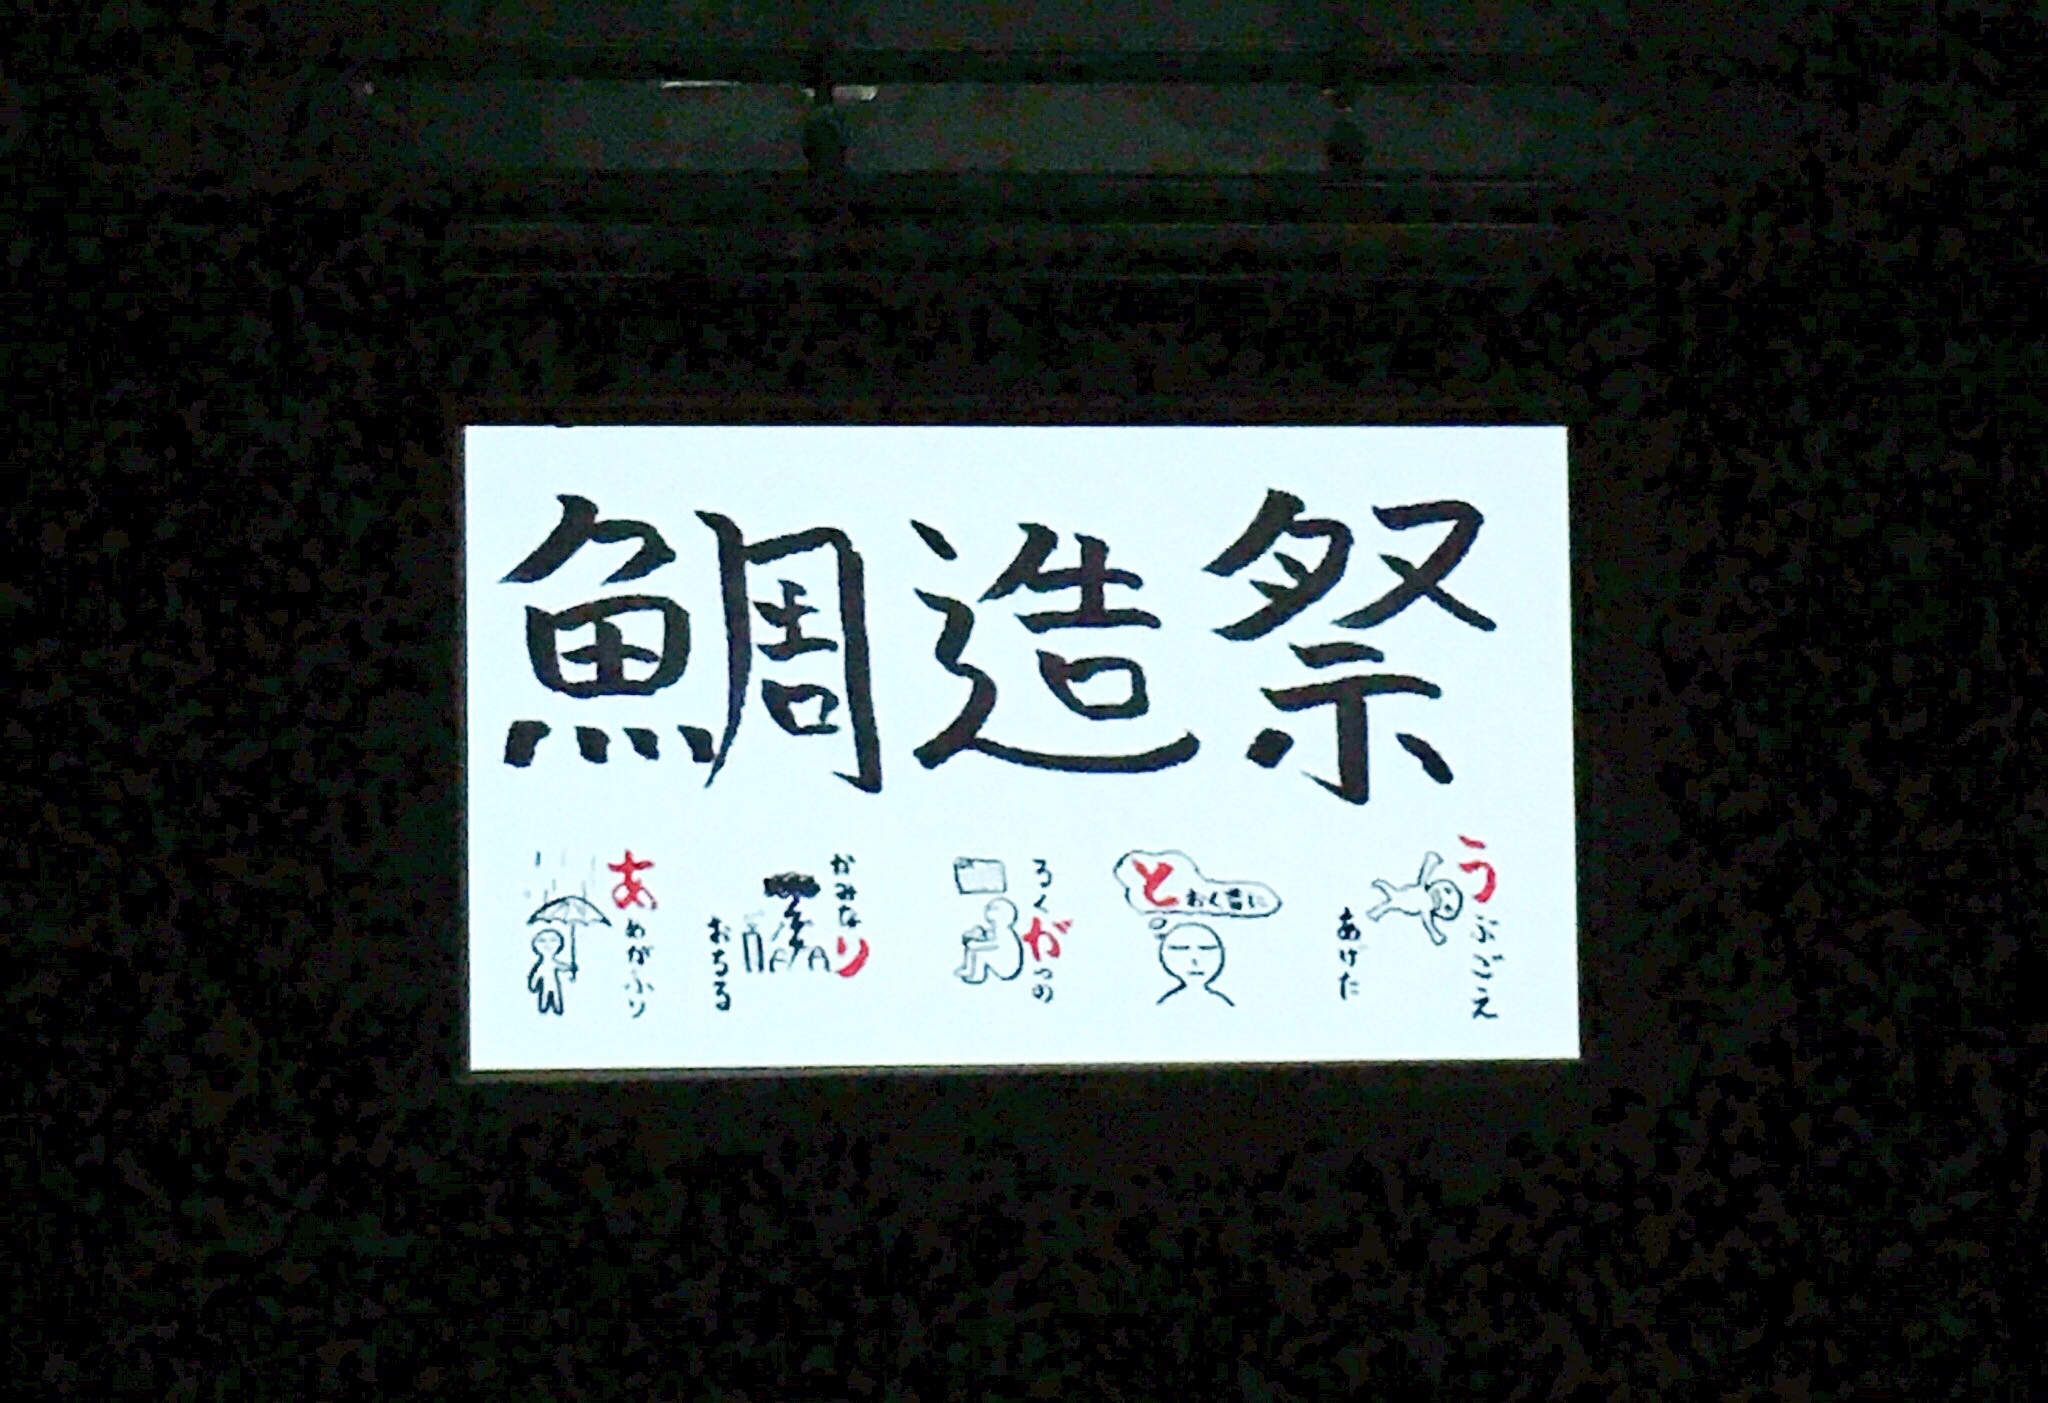 鯛造祭
あめがふり
かみなり
おちる
ろくがつの
とおく昔に
うぶごえ
あげた